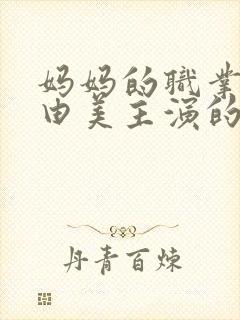 妈妈的職業
由美主演的
丹青百炼